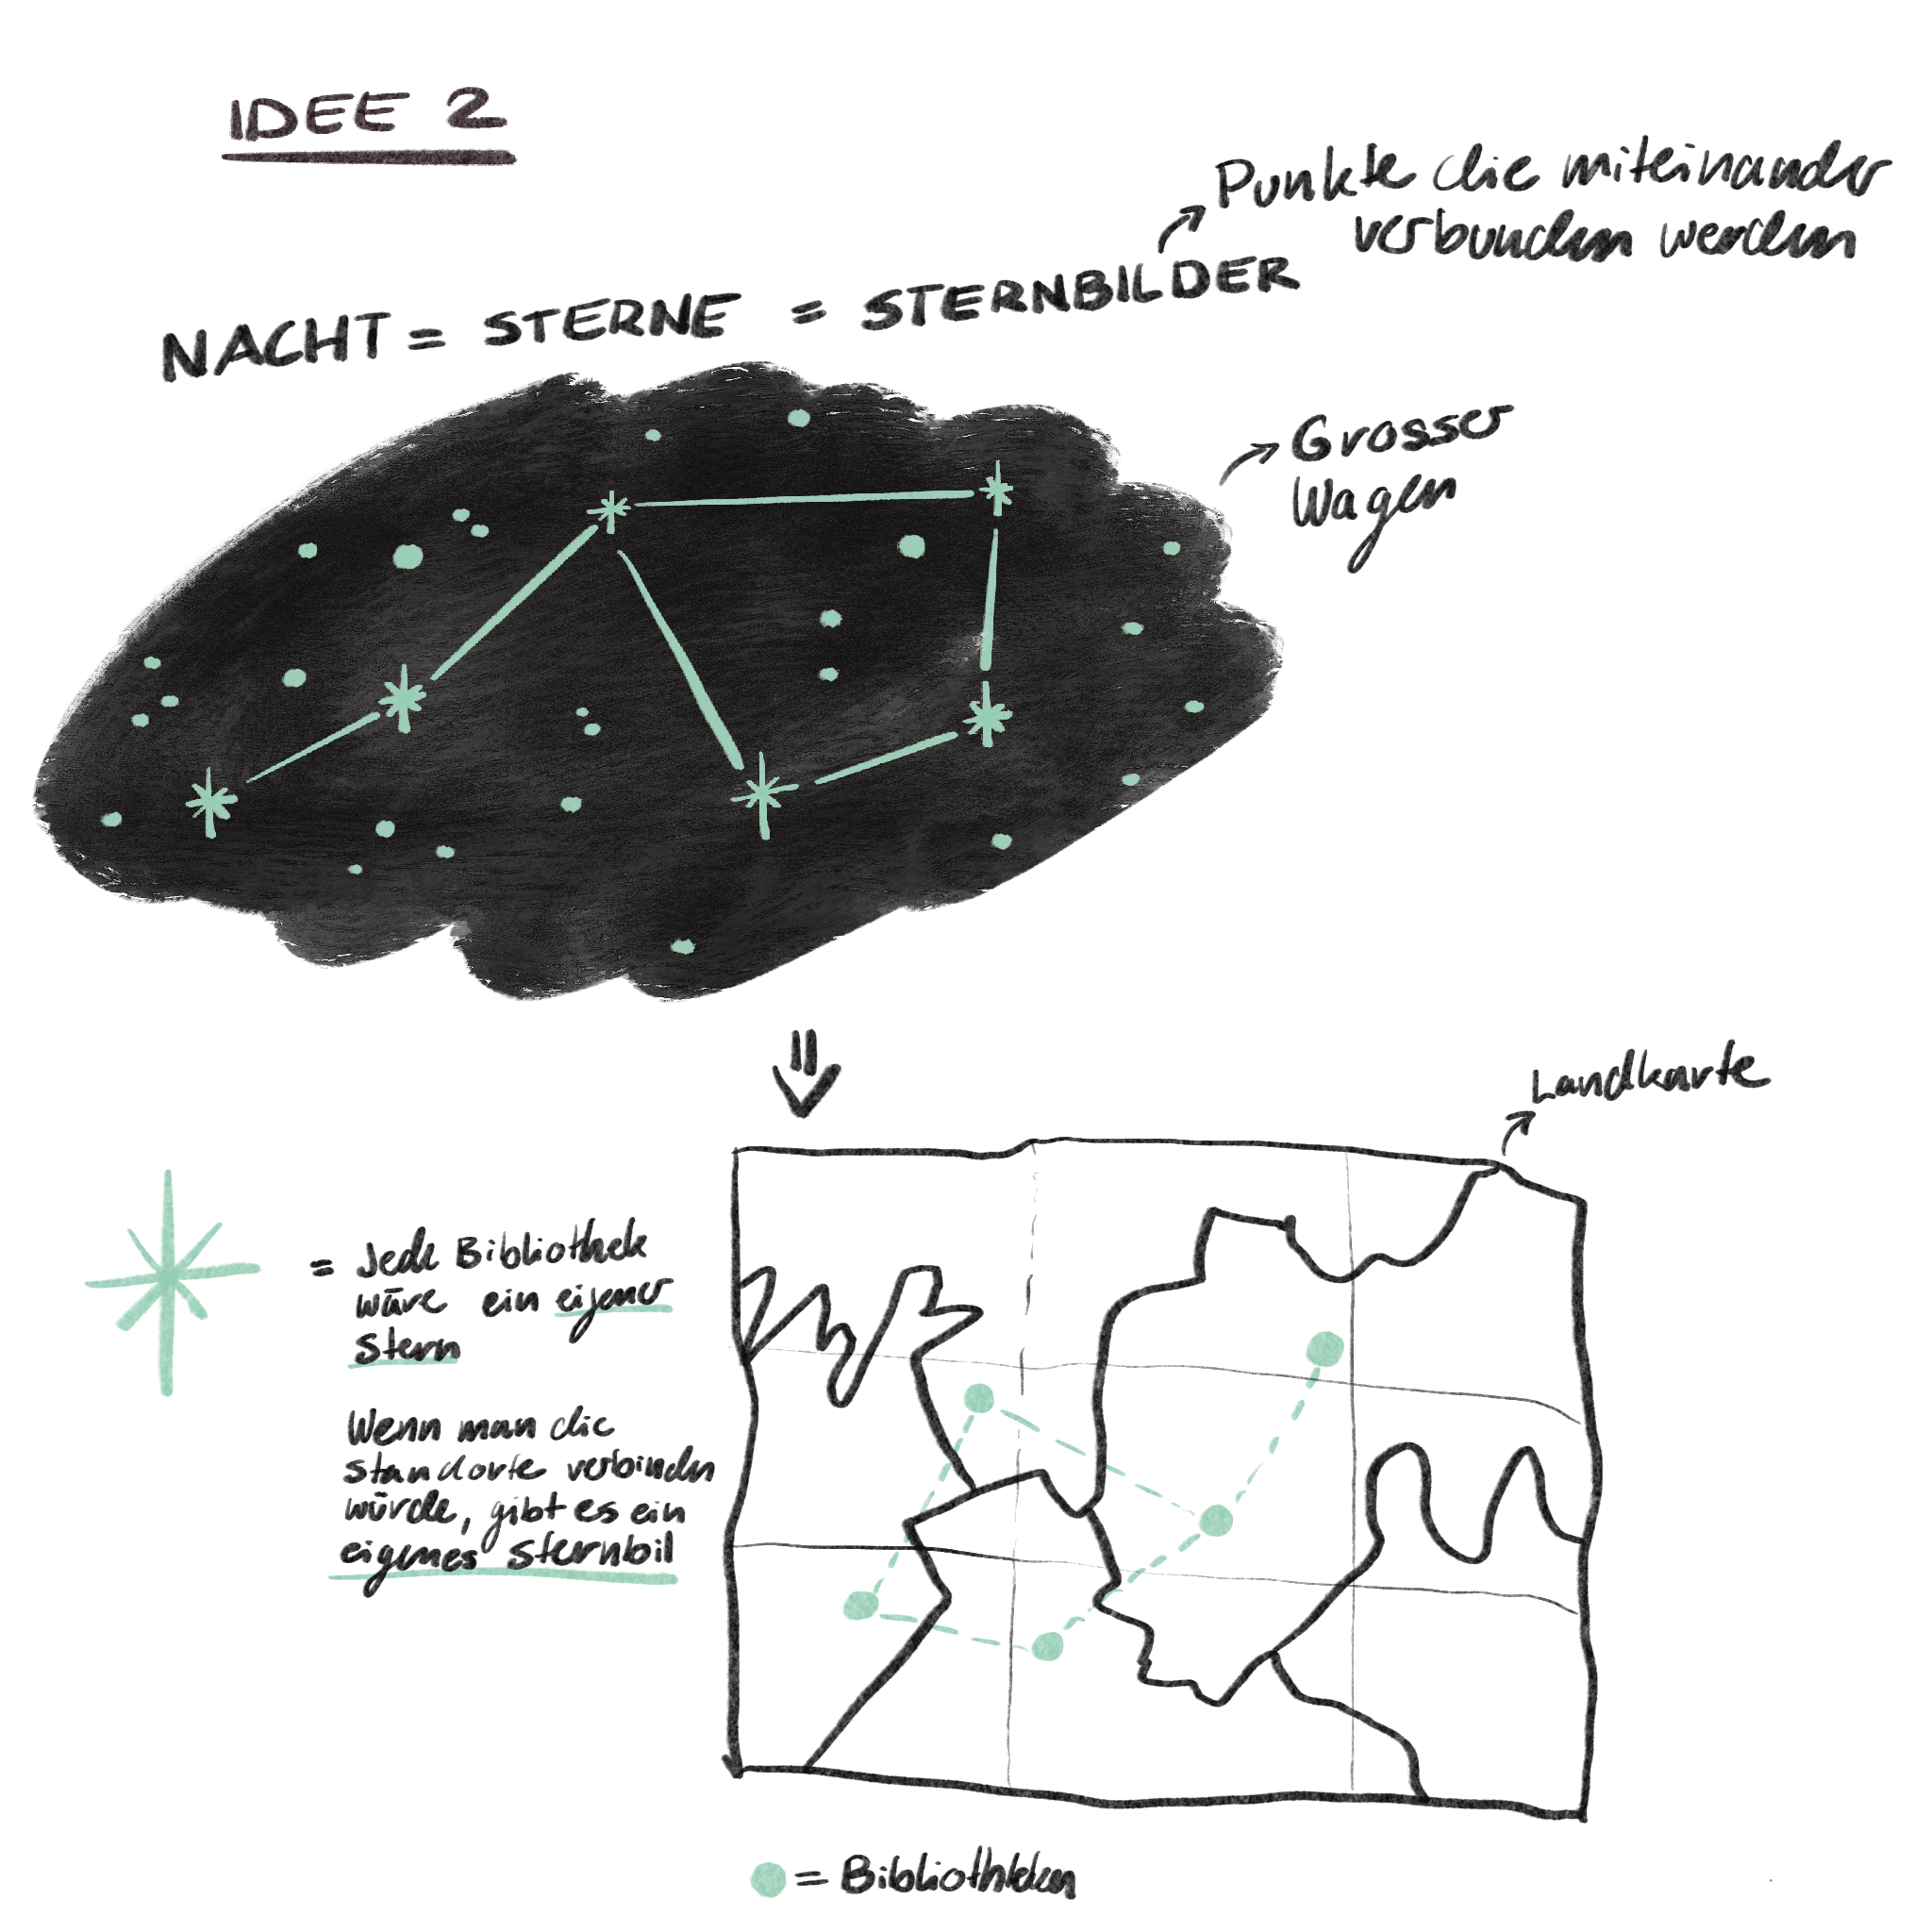 IDEE 2
Punkte die miteinander
verbunden werden
NACHT = STERNE = STERNBILDER
Grosser
Wagen
Landkarte
= Jede Bibliothek
wäre ein eigener
Stern
Wenn man die
standorte verbinden
würde, gibt es ein
eigenes Sternbil
= Bibliotheken